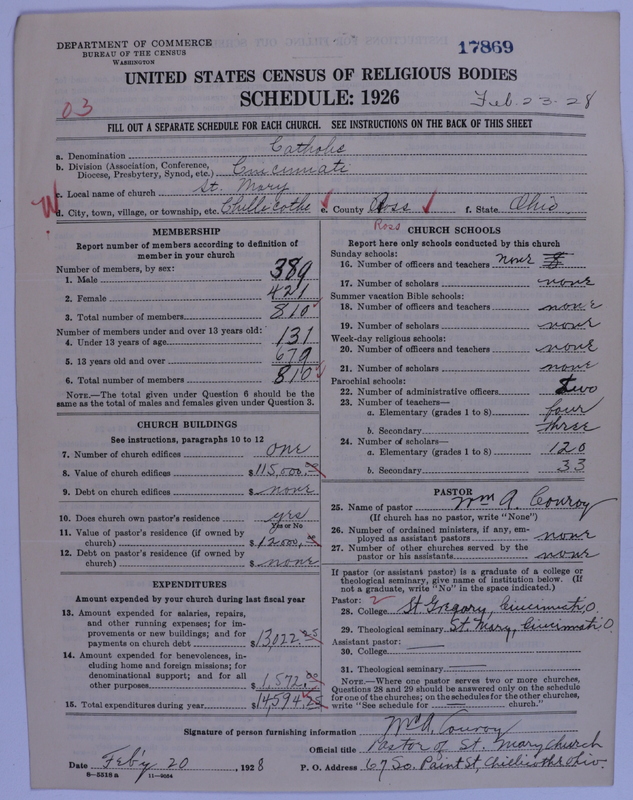 DEPARTMENT OF COMMERCE
BUREAU OF THE CENSUS
WASHINGTON
17869
UNITED STATES CENSUS OF RELIGIOUS BODIES
SCHEDULE: 1926
Feb. 23. 28
03
FILL OUT A SEPARATE SCHEDULE FOR EACH CHURCH. SEE INSTRUCTIONS ON THE BACK OF THIS SHEET
a. Denomination Catholic
b. Division (Association, Conference, Diocese, Presbytery, Synod, etc.) Cincinnati
c. Local name of church St. Mary
d. City, town, village, or township, etc. Chillicothe e. County Ross f. State Ohio
Ross
MEMBERSHIP
Report number of members according to definition of
member in your church
Number of members, by sex:
1. Male 389
2. Female 421
3. Total number of members 810
Number of members under and over 13 years old:
4. Under 13 years of age 131
5. 13 years old and over 679
6. Total number of members 810
NOTE.—The total given under Question 6 should be
same as the total of males and females given under Question 3.
CHURCH BUILDINGS
See instructions, paragraphs 10 to 12
7. Number of church edifices one
8. Value of church edifices $115,000.
9. Debt on church edifices $ none
10. Does church own pastor's residence yes
Yes or No
11. Value of pastor's residence (if owned by
church) $12,000.
12. Debt on pastor's residence (if owned by
church) $ none
EXPENDITURES
Amount expended by your church during last fiscal year
13. Amount expended for salaries, repairs,
and other running expenses; for im-
provements or new buildings; and for
payments on church debt $13,022.25
14. Amount expended for benevolences, in-
cluding home and foreign missions; for
denominational support; and for all
other purposes $1,572.00
15. Total expenditures during year $14,594.25
CHURCH SCHOOLS
Report here only schools conducted by this church
Sunday schools:
16. Number of officers and teachers none
17. Number of scholars none
Summer vacation Bible schools:
18. Number of officers and teachers none
19. Number of scholars none
Week-day religious schools:
20. Number of officers and teachers none
21. Number of scholars none
Parochial schools:
22. Number of administrative officers two
23. Number of teachers—
a. Elementary (grades 1 to 8) four
b. Secondary three
24. Number of scholars—
a. Elementary (grades 1 to 8) 120
b. Secondary 33
PASTOR
25. Name of pastor Wm A. Conroy
(If church has no pastor, write "None")
26. Number of ordained ministers, if any, em-
ployed as assistant pastors none
27. Number of other churches served by the
pastor or his assistants none
If pastor (or assistant pastor) is a graduate of a college or
theological seminary, give name of institution below. (If
not a graduate, write "No" in the space indicated.)
Pastor: 2
28. College St Gregory, Cincinnati O.
29. Theological seminary St. Mary, Cincinnati O.
Assistant pastor:
30. College
31. Theological seminary
NOTE.—Where one pastor serves two or more churches,
Questions 28 and 29 should be answered only on the schedule
for one of the churches; on the schedules for the other churches,
write "See schedule for church."
Signature of person furnishing information Wm A. Conroy
Official title Pastor of St. Mary Church
Date Feb'y 20, 1928 P. O. Address 67 So. Paint St, Chillicothe Ohio.
8—5518 a 11—9084